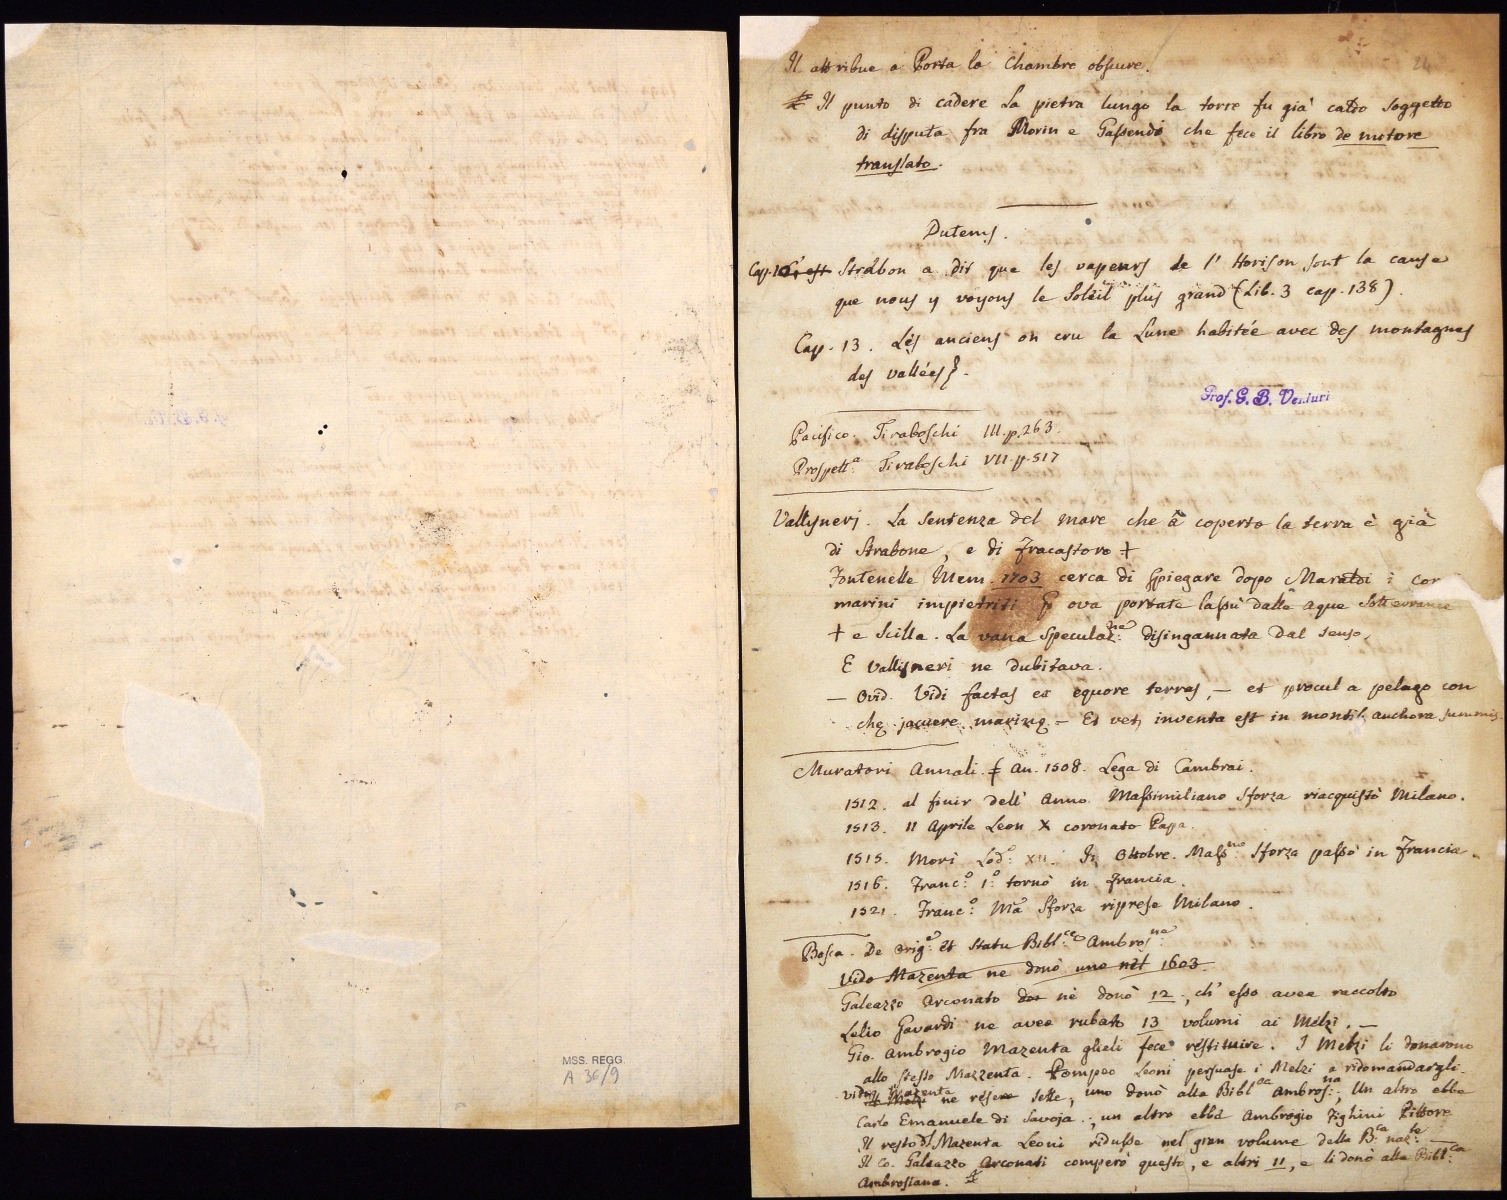 MSS. REGG.
A 36/9
24
Il attribue a Porta la Chambre obscure.
Il punto di cadere la pietra lungo la torre fu già caldo soggetto
di disputa fra Morin e Gassendi che fece il libro de motore
translato.
Dutems.
Cap. 10 C'est Strabon a dit que les vapeurs de l'Horison sont la cause
que nous y voyons le Soleil plus grand (Lib. 3 cap. 138).
Cap. 13. Les anciens on cru la Lune habitée avec des montagnes
des vallées.
Prof. G. B. Venturi
Pacifico. Tiraboschi III. p. 263.
Prospett.a Tiraboschi VII. p. 517
Vallisneri. La sentenza del mare che à coperto la terra è già
di Strabone, e di Fracastoro +
Fontenelle Mem. 1703 cerca di spiegare dopo Maraldi i cor
marini impietriti p ova portate lassù dalle aque sotterranee
+ e Scilla. La vana Speculaz.ne disingannata dal senso.
E Vallisneri ne dubitava.
— Ovid. Vidi factas ex equore terras, — et procul a pelago con
che jacuere marinę — Et vet, inventa est in montib. anchora summis.
Muratori Annali. An. 1508. Lega di Cambrai.
1512. al finir dell' Anno Massimiliano Sforza riacquistò Milano.
1513. 11 Aprile Leon X coronato Papa.
1515. Morì Lod.o XII. In Ottobre. Mass.no Sforza passò in Francia.
1516. Franc.o 1.o tornò in Francia.
1521. Franc.o Ma Sforza riprese Milano.
Bosca. De Orig.e et Statu Bibl.ce Ambros.ne
Vido Mazenta ne donò uno nel 1603.
Galeazzo Arconato ne donò 12, ch' esso avea raccolto
Lelio Gavardi ne avea rubato 13 volumi ai Melzi. —
Gio. Ambrogio Mazenta glieli fece restituire. I Melzi li donarono
allo stesso Mazzenta. Pompeo Leoni persuase i Melzi a ridomandargli.
Vido Mazenta ne resere sette, uno donò alla Bibl.ca Ambros.na, Un altro ebbe
Carlo Emanuele di Savoja, un altro ebbe Ambrogio Fighini Pittore
Il resto dl Mazenta Leoni ridusse nel gran volume della B.ca naz.le —
Il Co. Galeazzo Arconati comperò questo, e altri 11, e li donò alla Bibl.ca
Ambrosiana.